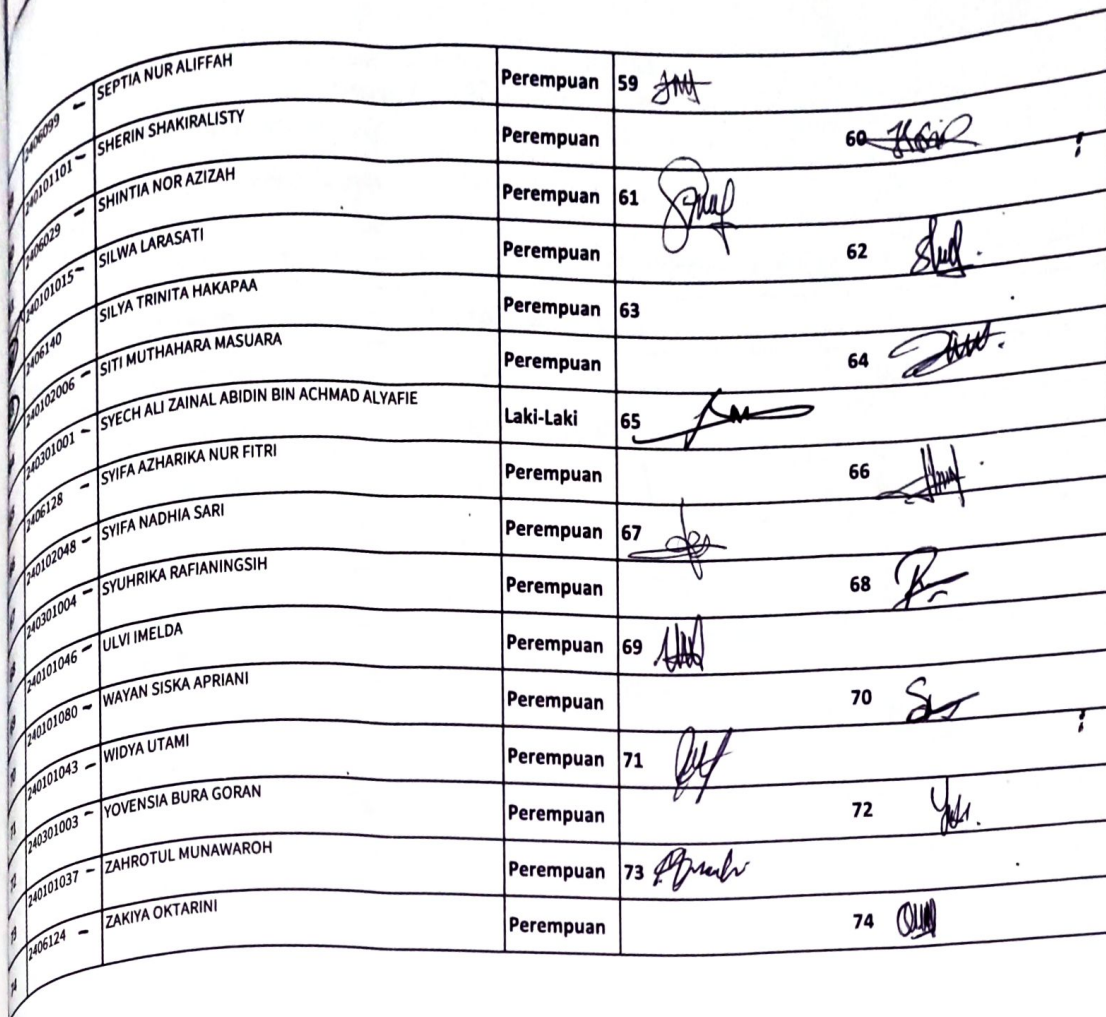 2406099 – SEPTIA NUR ALIFFAH Perempuan 59
240101101 – SHERIN SHAKIRALISTY Perempuan 60
2406029 – SHINTIA NOR AZIZAH Perempuan 61
240101015 – SILWA LARASATI Perempuan 62
2406140 SILYA TRINITA HAKAPAA Perempuan 63
240102006 – SITI MUTHAHARA MASUARA Perempuan 64
240301001 – SYECH ALI ZAINAL ABIDIN BIN ACHMAD ALYAFIE Laki-Laki 65
2406128 – SYIFA AZHARIKA NUR FITRI Perempuan 66
240102048 – SYIFA NADHIA SARI Perempuan 67
240301004 – SYUHRIKA RAFIANINGSIH Perempuan 68
240101046 – ULVI IMELDA Perempuan 69
240101080 – WAYAN SISKA APRIANI Perempuan 70
71 240101043 – WIDYA UTAMI Perempuan 71
72 240301003 – YOVENSIA BURA GORAN Perempuan 72
73 240101037 – ZAHROTUL MUNAWAROH Perempuan 73
74 2406124 – ZAKIYA OKTARINI Perempuan 74